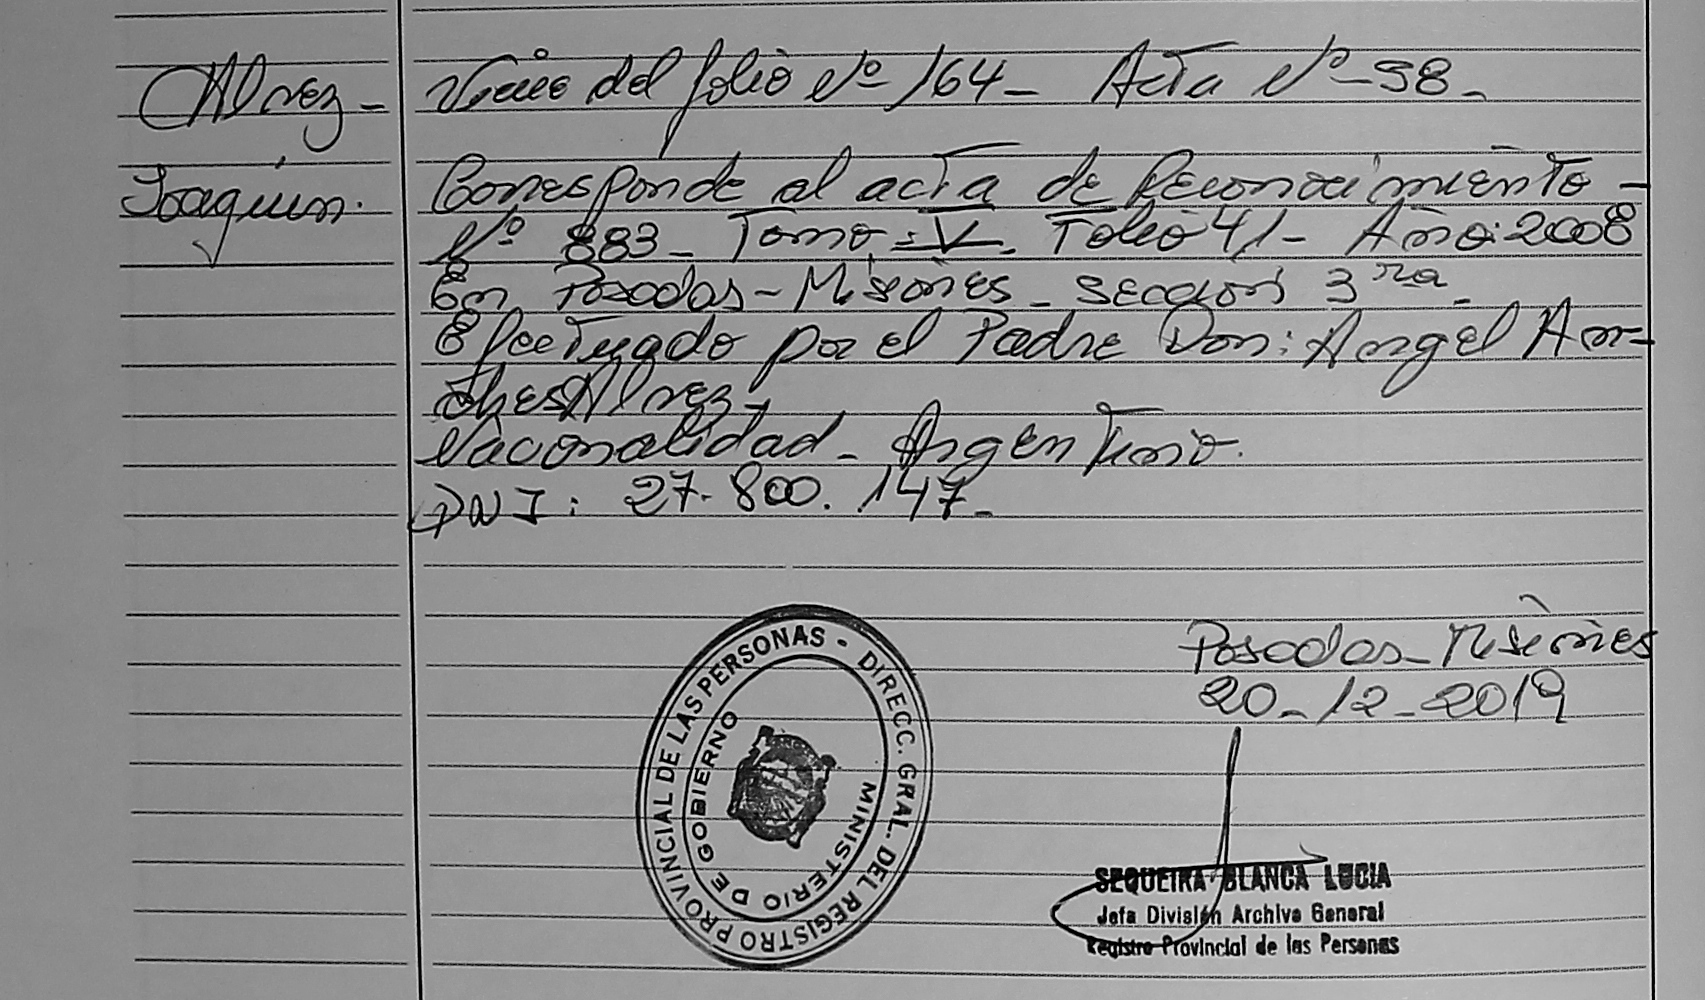 Alvez - Viene del folio Nº 164 - Acta Nº - 98 -
Joaquín. Corresponde al acta de Reconocimiento -
Nº 883 - Tomo: V. Folio 41 - Año: 2008
En Posadas - Misiones - Sección 3ra -
Efectuado por el Padre Don: Angel An-
Alvez -
Nacionalidad - Argentino.
DNI: 27.800.147 -
Posadas - Misiones
20 - 12 - 2019
DIRECC. GRAL. DEL REGISTRO PROVINCIAL DE LAS PERSONAS -
MINISTERIO DE GOBIERNO
SEQUEIRA BLANCA LUCIA
Jefa División Archivo General
Registro Provincial de las Personas